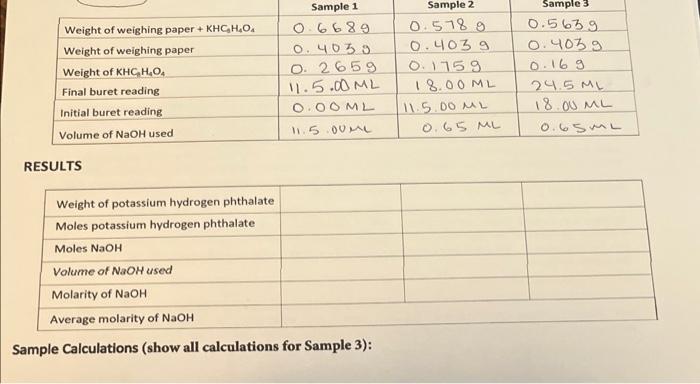 Sample 1 Sample 2 Sample 3
Weight of weighing paper + KHC₈H₄O₄ 0.668g 0.578g 0.563g
Weight of weighing paper 0.403g 0.403g 0.403g
Weight of KHC₈H₄O₄ 0.265g 0.175g 0.16g
Final buret reading 11.5.00 ML 18.00 ML 24.5 ML
Initial buret reading 0.00 ML 11.5.00 ML 18.00 ML
Volume of NaOH used 11.5.00ML 0.65 ML 0.65ML
RESULTS
Weight of potassium hydrogen phthalate
Moles potassium hydrogen phthalate
Moles NaOH
Volume of NaOH used
Molarity of NaOH
Average molarity of NaOH
Sample Calculations (show all calculations for Sample 3):